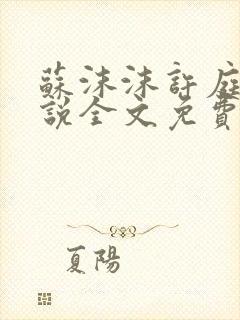 蘇沫沫許庭
說全文免費
夏陽